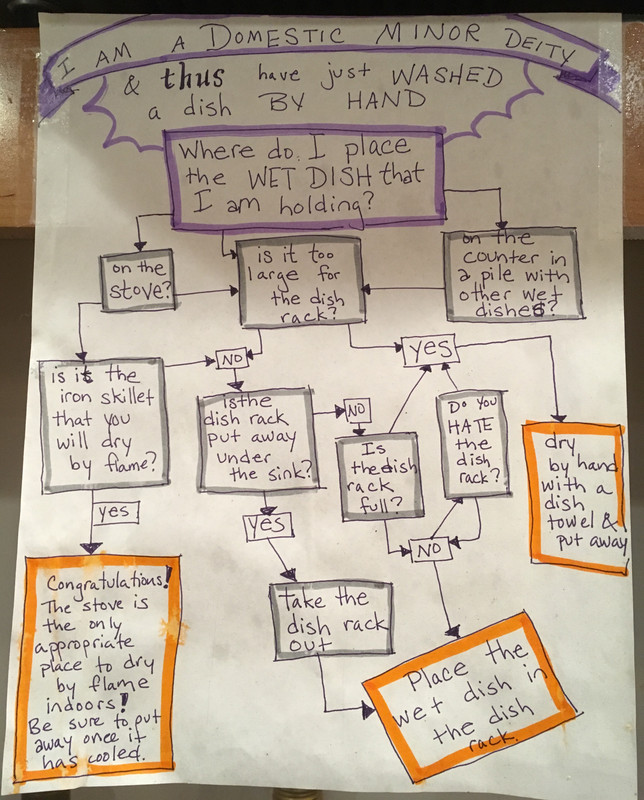 I AM A DOMESTIC MINOR DEITY
& thus have just WASHED
a dish BY HAND
Where do I place
the WET DISH that
I am holding?
on the
stove?
is it too
large for
the dish
rack?
on the
counter in
a pile with
other wet
dishes?
is it the
iron skillet
that you
will dry
by flame?
NO
yes
Is the
dish rack
put away
under
the sink?
NO
Is
the dish
rack
full?
Do you
HATE
the
dish
rack?
dry
by hand
with a
dish
towel &
put away
yes
yes
NO
Congratulations!
The stove is
the only
appropriate
place to dry
by flame
indoors!
Be sure to put
away once it
has cooled.
take the
dish rack
out
Place the
wet dish in
the dish
rack.